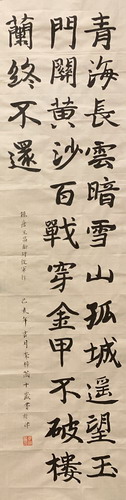 青海長雲暗雪山孤城遥望玉
門關黄沙百戰穿金甲不破樓
蘭終不還